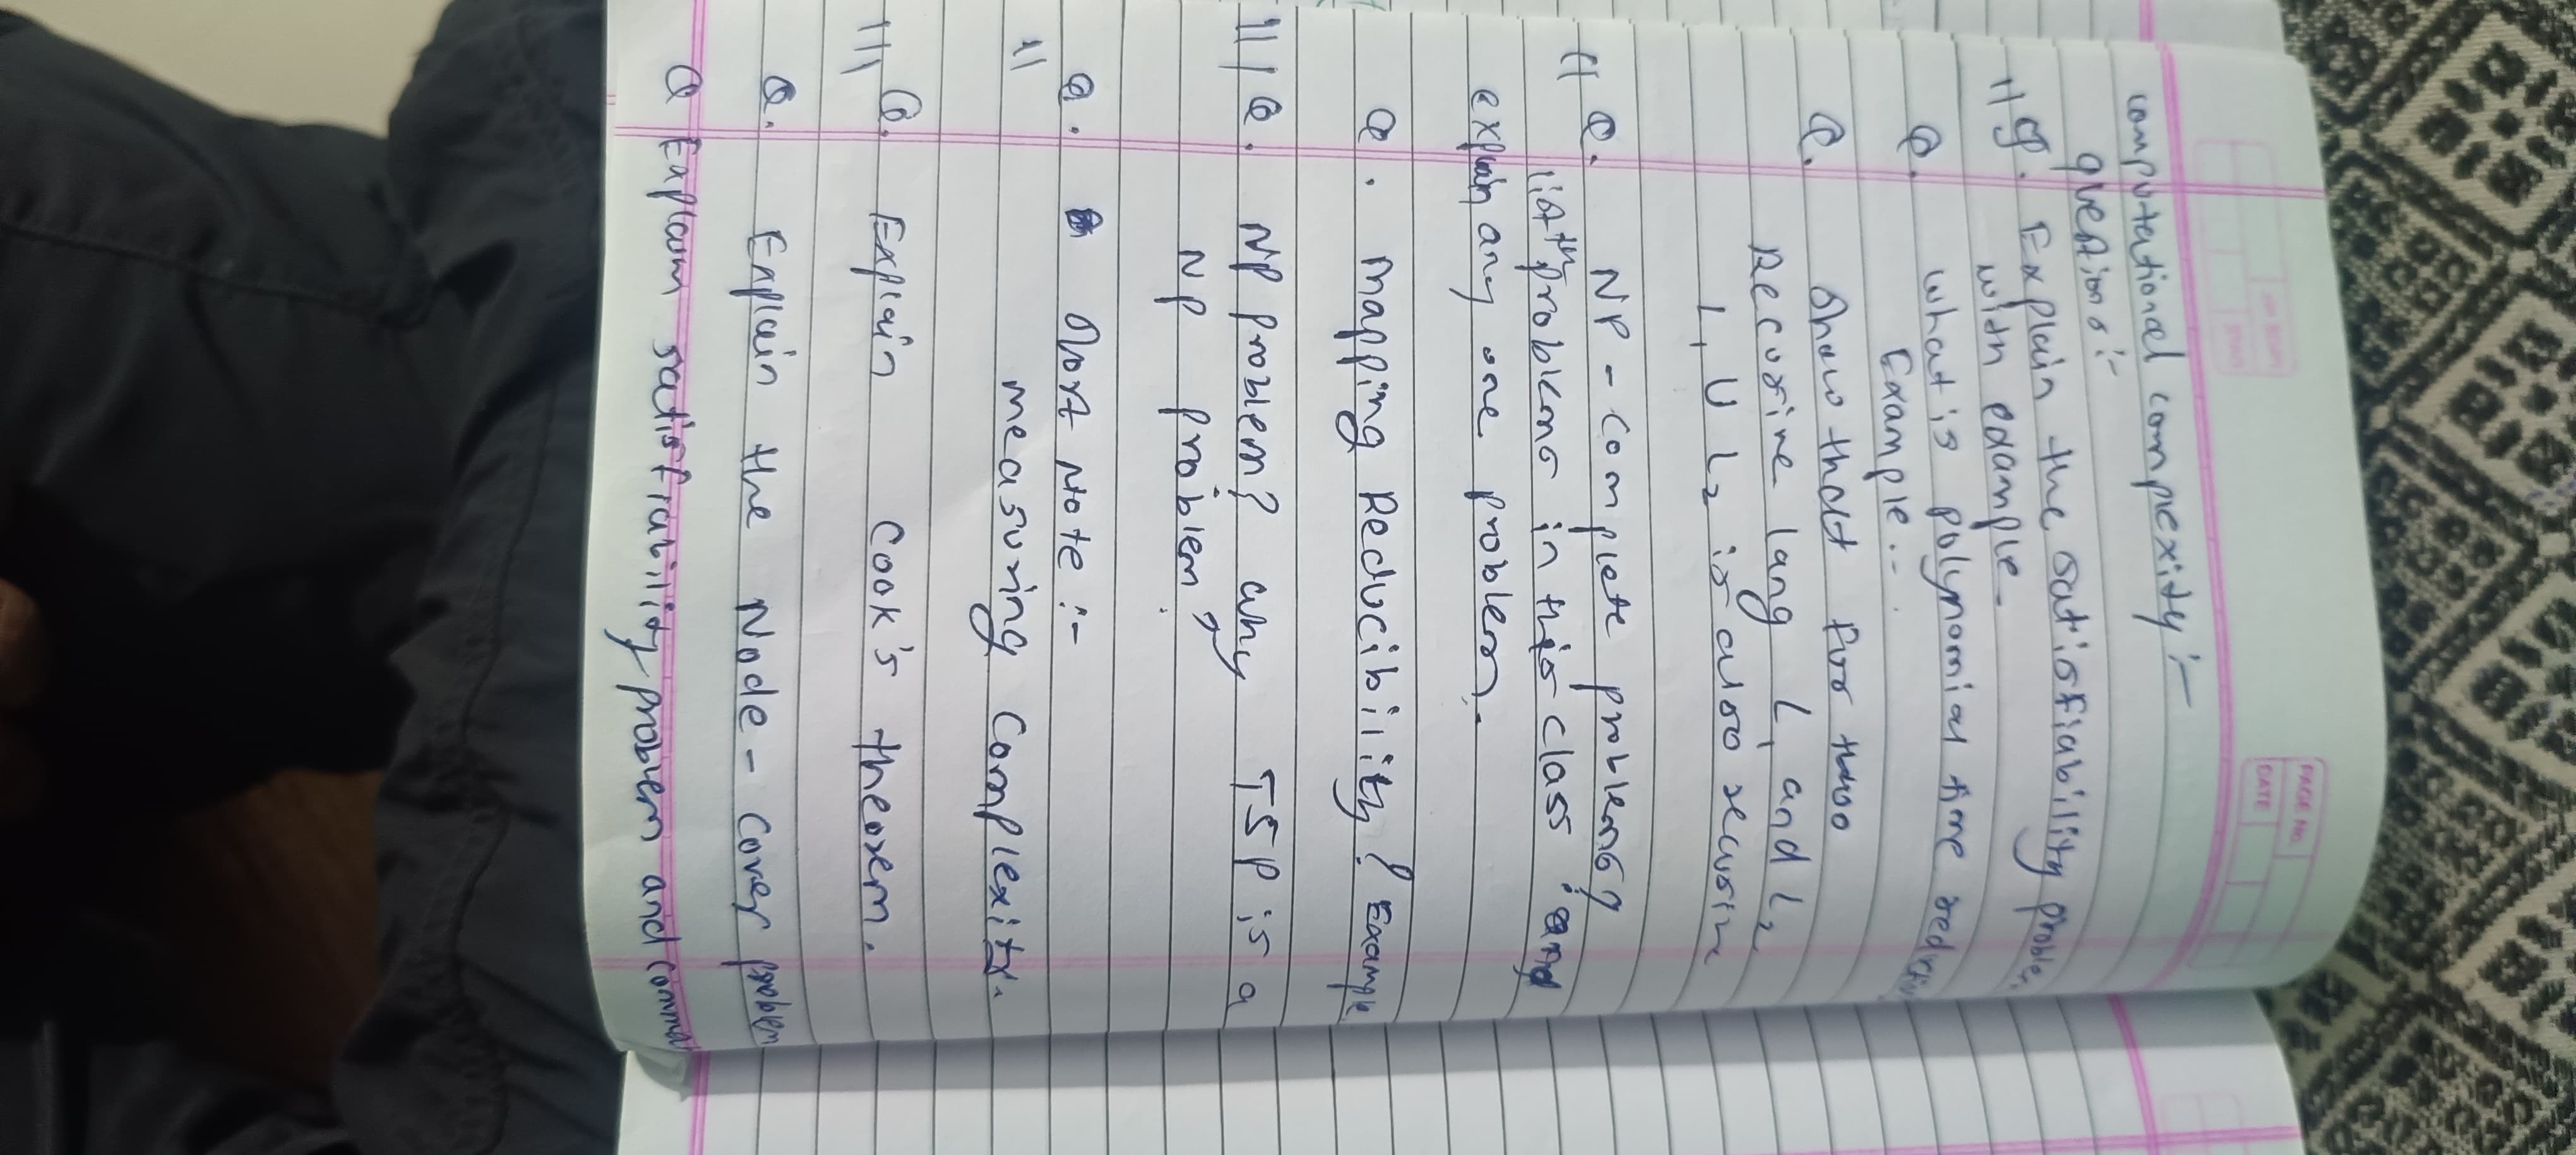 PAGE No.
DATE
computational complexity :-
questions :-
11 Q. Explain the satisfiability problem
with example.
Q. what is polynomial time reduction
Example...
Q. Show that for two
Recursive lang L1 and L2
L1 U L2 is also recursive
11 Q. NP - Complete problems?
list the problems in this class and
explain any one problem.
Q. Mapping Reducibility? Example
111 Q. NP Problem? why TSP is a
NP problem?
Q. Short Note :-
11 measuring Complexity.
111 Q. Explain Cook's theorem.
Q. Explain the Node - Cover problem
Q Explain satisfiability problem and